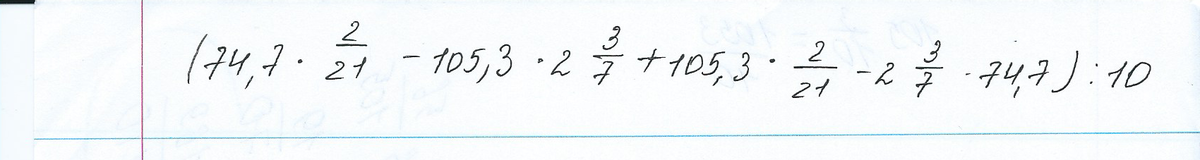 (74,7 · 2/21 - 105,3 · 2 3/7 + 105,3 · 2/21 - 2 3/7 · 74,7) : 10